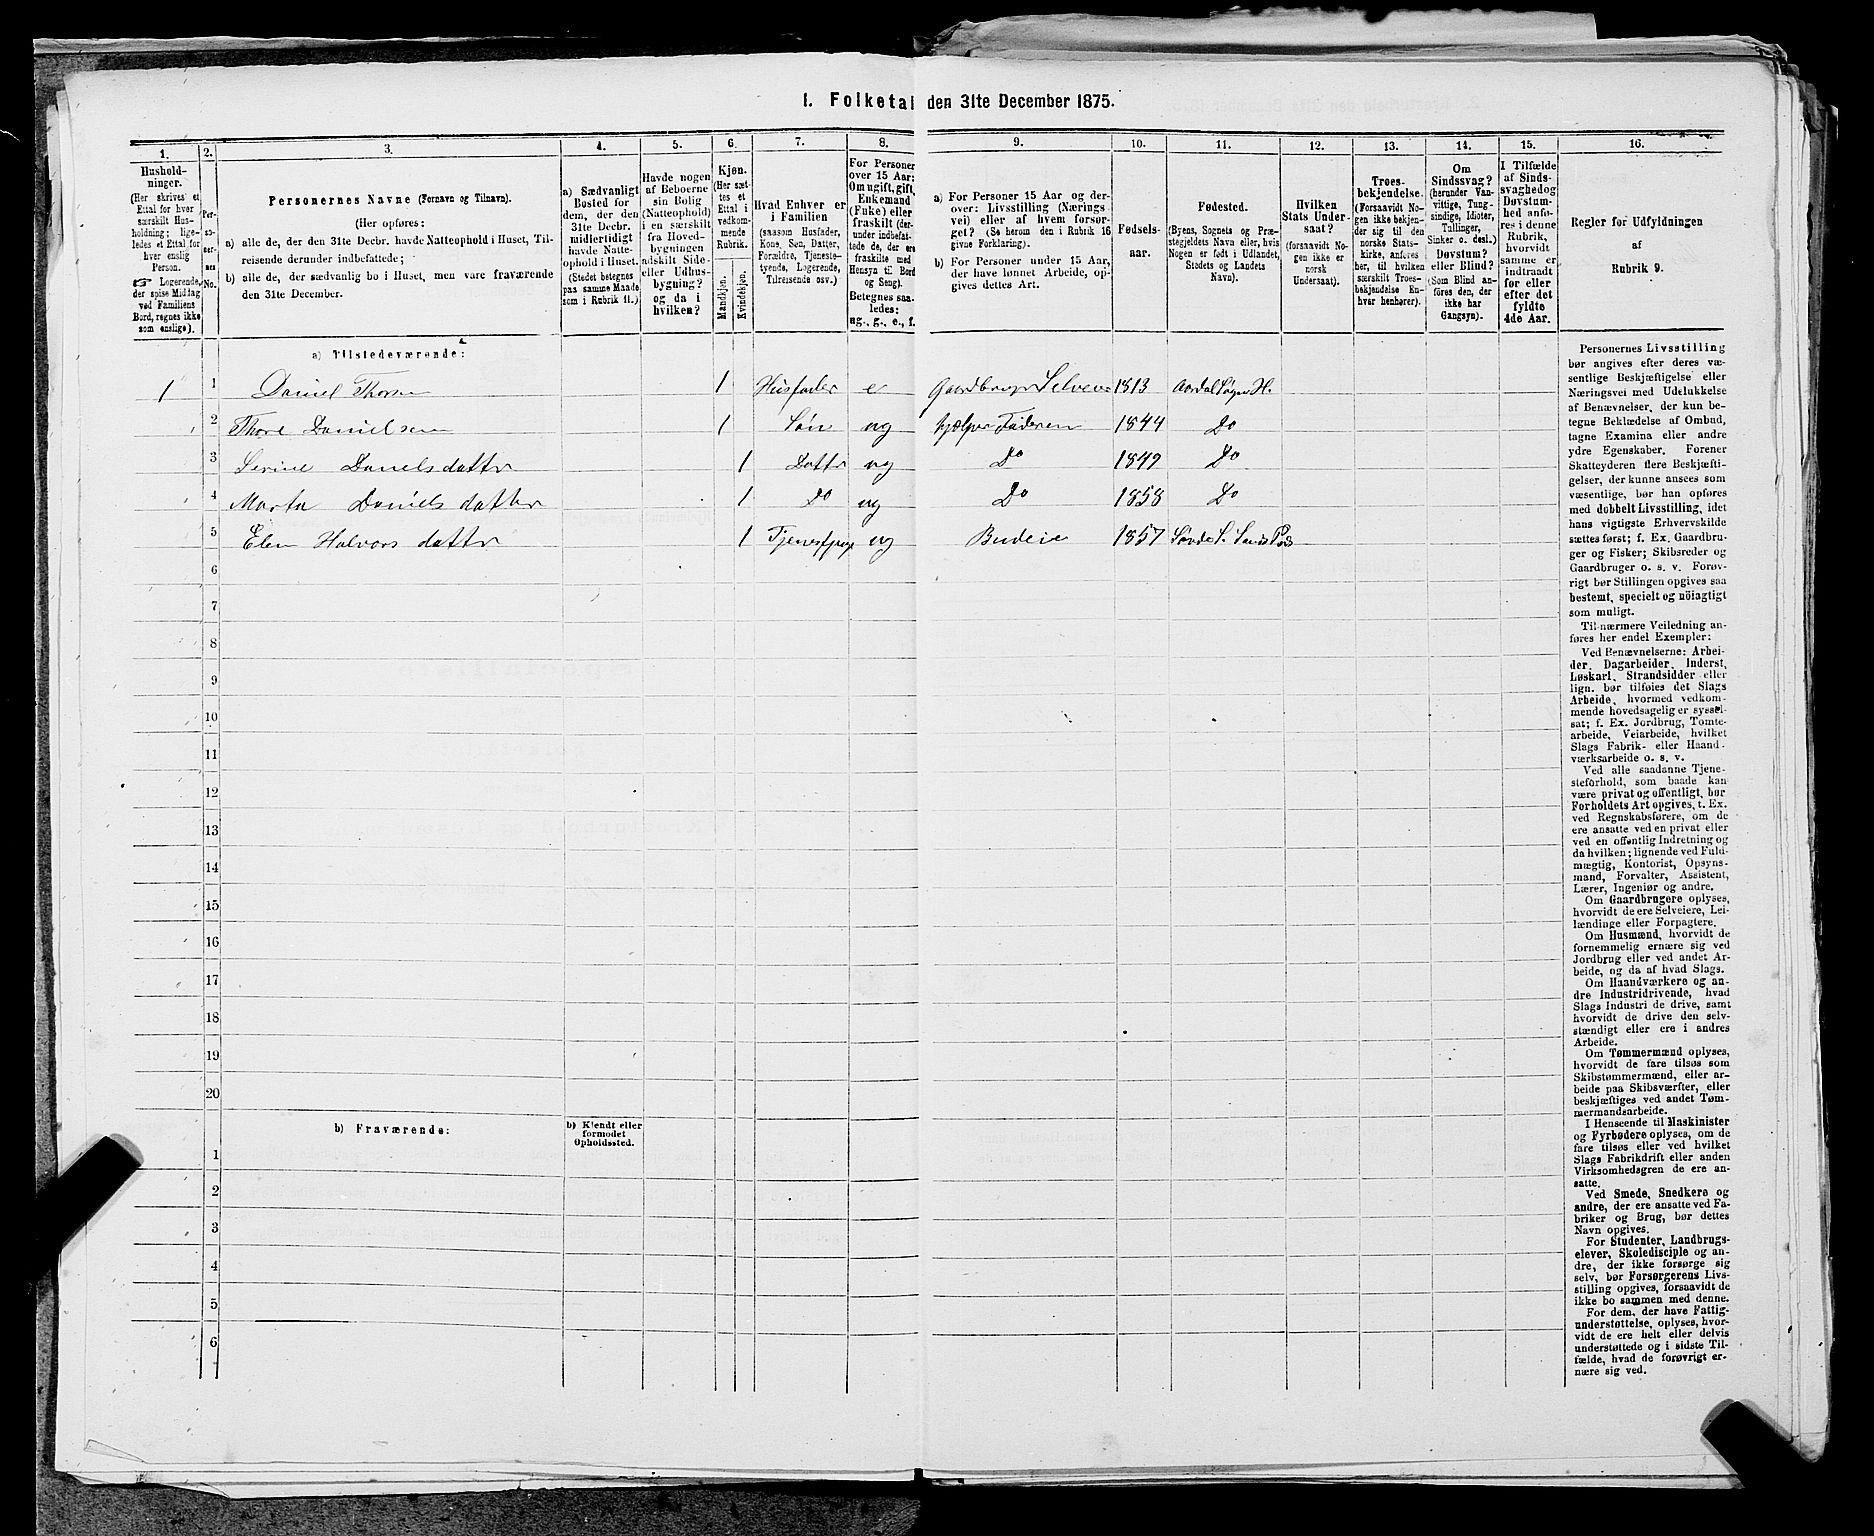 1. Folketal den 31te December 1875.
1. 2. 3. 4. 5. 6. 7. 8. 9. 10. 11. 12. 13. 14. 15. 16.
Hushold-
ninger.
(Her skrives et
Ettal for hver
særskilt Hus-
holdning; lige-
ledes et Ettal for
hver enslig
Person.
☞ Logerende,
der spise Middag
ved Familiens
Bord, regnes ikke
som enslige).
Per-
so-
ner-
nes
No.
Personernes Navne (Fornavn og Tilnavn).
(Her opføres:
a) alle de, der den 31te Decbr. havde Natteophold i Huset, Til-
reisende derunder indbefattede;
b) alle de, der sædvanlig bo i Huset, men vare fraværende
den 31te December.
a) Sædvanligt
Bosted for
dem, der den
31te Decbr.
midlertidigt
havde Natte-
ophold i Huset.
(Stedet betegnes
paa samme Maade
som i Rubrik 11.)
Havde nogen
af Beboerne
sin Bolig
(Natteophold)
i en særskilt
fra Hoved-
bygningen
adskilt Side-
eller Udhus-
bygning?
og da i
hvilken?
Kjøn.
(Her sæt-
tes et
Ettal i
vedkom-
mende
Rubrik.
Mandkjøn.
Kvindekjøn.
Hvad Enhver er
i Familien
(saasom Husfader,
Kone, Søn, Datter,
Forældre, Tjeneste-
tyende, Logerende,
Tilreisende osv.)
For Personer
over 15 Aar:
Om ugift, gift,
Enkemand
(Enke) eller
fraskilt (der-
under indbefat-
tede de, der ere
fraskilte med
Hensyn til Bord
og Seng).
Betegnes saa-
ledes:
ug., g., e., f.
a) For Personer 15 Aar og der-
over: Livsstilling (Nærings-
vei) eller af hvem forsør-
get? (Se herom den i Rubrik 16
givne Forklaring).
b) For Personer under 15 Aar,
der have lønnet Arbeide, op-
gives dettes Art.
Fødsels-
aar.
Fødested.
(Byens, Sognets og Præ-
stegjeldets Navn eller, hvis
Nogen er født i Udlandet,
Stedets og Landets
Navn).
Hvilken
Stats Under-
saat?
(forsaavidt No-
gen ikke er
norsk
Undersaat).
Troes-
bekjendelse.
(Forsaavidt No-
gen ikke bekjen-
der sig til den
norske Stats-
kirke, anføres
her, til hvilken
særskilt Troes-
bekjendelse En-
hver henhører).
Om
Sindssvag?
(herunder Van-
vittige, Tung-
sindige, Idioter,
Tullinger,
Sinker o. desl.)
Døvstum?
eller Blind?
(Som Blind an-
føres den, der
ikke har
Gangsyn).
I Tilfælde
af Sinds-
svaghed og
Døvstum-
hed anfø-
res i denne
Rubrik,
hvorvidt
samme er
indtraadt
før eller
efter det
fyldte
4de Aar.
Regler for Udfyldningen
af
Rubrik 9.
a) Tilstedeværende:
1 1 Daniel Thorsen 1 Husfader e Gaardbruger Selveier 1813 Aardal Sogn H.
2 Thore Danielsen 1 Søn ug hjælper Faderen 1844 Do
3 Serine Danielsdatter 1 Datter ug Do 1849 Do
4 Marta Daniels datter 1 Do ug Do 1858 Do
5 Elen Halvors datter 1 ug Budeie 1857
6
7
8
9
10
11
12
13
14
15
16
17
18
19
20
b) Fraværende:
b) Kjendt eller
formodet
Opholdssted.
1
2
3
4
5
6
Personernes Livsstilling
bør angives efter deres væ-
sentlige Beskjæftigelse eller
Næringsvei med Udelukkelse
af Benævnelser, der kun be-
tegne Beklædelse af Ombud,
tagne Examina eller andre
ydre Egenskaber. Forener
Skatteyderen flere Beskjæfti-
gelser, der kunne ansees som
væsentlige, bør han opføres
med dobbelt Livsstilling, idet
hans vigtigste Erhvervskilde
sættes først; f. Ex. Gaardbru-
ger og Fisker; Skibsreder og
Gaardbruger o. s. v. Forøv-
rigt bør Stillingen opgives saa
bestemt, specielt og nöiagtigt
som muligt.
Til nærmere Veiledning an-
føres her endel Exempler:
Ved Benævnelserne: Arbei-
der, Dagarbeider, Inderst,
Løskarl, Strandsidder eller
lign. bør tilføies det Slags
Arbeide, hvormed vedkom-
mende hovedsagelig er syssel-
sat; f. Ex. Jordbrug, Tomte-
arbeide, Veiarbeide, hvilket
Slags Fabrik- eller Haand-
værksarbeide o. s. v.
Ved alle saadanne Tjene-
steforhold, som baade kan
være privat og offentligt, bør
Forholdets Art opgives, t. Ex.
ved Regnskabsførere, om de
ere ansatte ved en privat eller
ved en offentlig Indretning og
da hvilken; lignende ved Fuld-
mægtig, Kontorist, Opsyns-
mand, Forvalter, Assistent,
Lærer, Ingeniør og andre.
Om Gaardbrugere oplyses,
hvorvidt de ere Selveiere, Lei-
lændinge eller Forpagtere.
Om Husmænd, hvorvidt de
fornemmelig ernære sig ved
Jordbrug eller ved andet Ar-
beide, og da af hvad Slags.
Om Haandværkere og an-
dre Industridrivende, hvad
Slags Industri de drive, samt
hvorvidt de drive den selv-
stændigt eller ere i andres
Arbeide.
Om Tømmermænd oplyses,
hvorvidt de fare tilsøs som
Skibstømmermænd, eller ar-
beide paa Skibsværfter, eller
beskjæftiges ved andet Tøm-
mermandsarbeide.
I Henseende til Maskinister
og Fyrbødere oplyses, om de
fare tilsøs eller ved hvilket
Slags Fabrikdrift eller anden
Virksomhedsgren de ere an-
satte.
Ved Smede, Snedkere og
andre, der ere ansatte ved Fa-
briker og Brug, bør dettes
Navn opgives.
For Studenter, Landbrugs-
elever, Skoledisciple og an-
dre, der ikke forsørge sig
selv, bør Forsørgerens Livs-
stilling opgives, forsaavidt de
ikke bo sammen med denne.
For dem, der have Fattig-
understøttelse, oplyses, hvor-
vidt de ere helt eller delvis
understøttede og i sidste Til-
fælde, hvad de forøvrigt er-
nære sig ved.